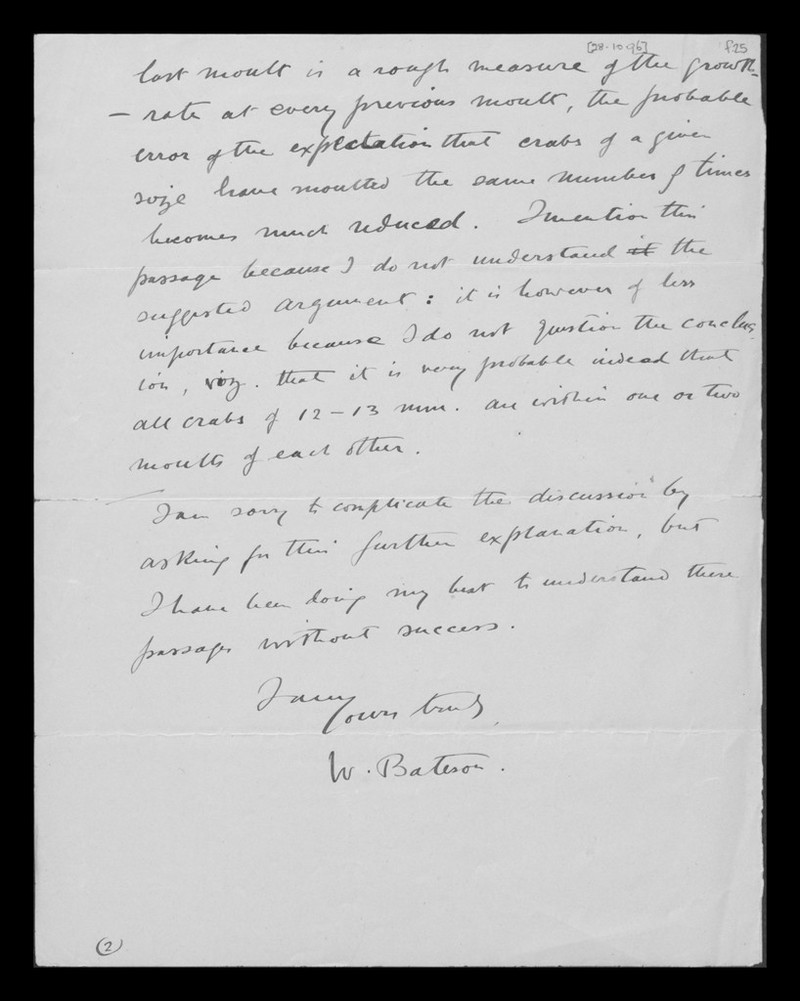 [28.10.96] f.25
last moult is a rough measure of the growth-
- rate at every previous moult, the probable
error of the expectation that crabs of a given
size have moulted the same number of times
becomes much reduced. I mention this
passage because I do not understand it the
suggested argument: it is however of less
importance because I do not question the conclus-
ion, viz. that it is very probable indeed that
all crabs of 12-13 mm. are within one or two
moults of each other.
I am sorry to complicate the discussion by
asking for this further explanation, but
I have been doing my best to understand these
passages without success.
I am
Yours truly,
W. Bateson.
2